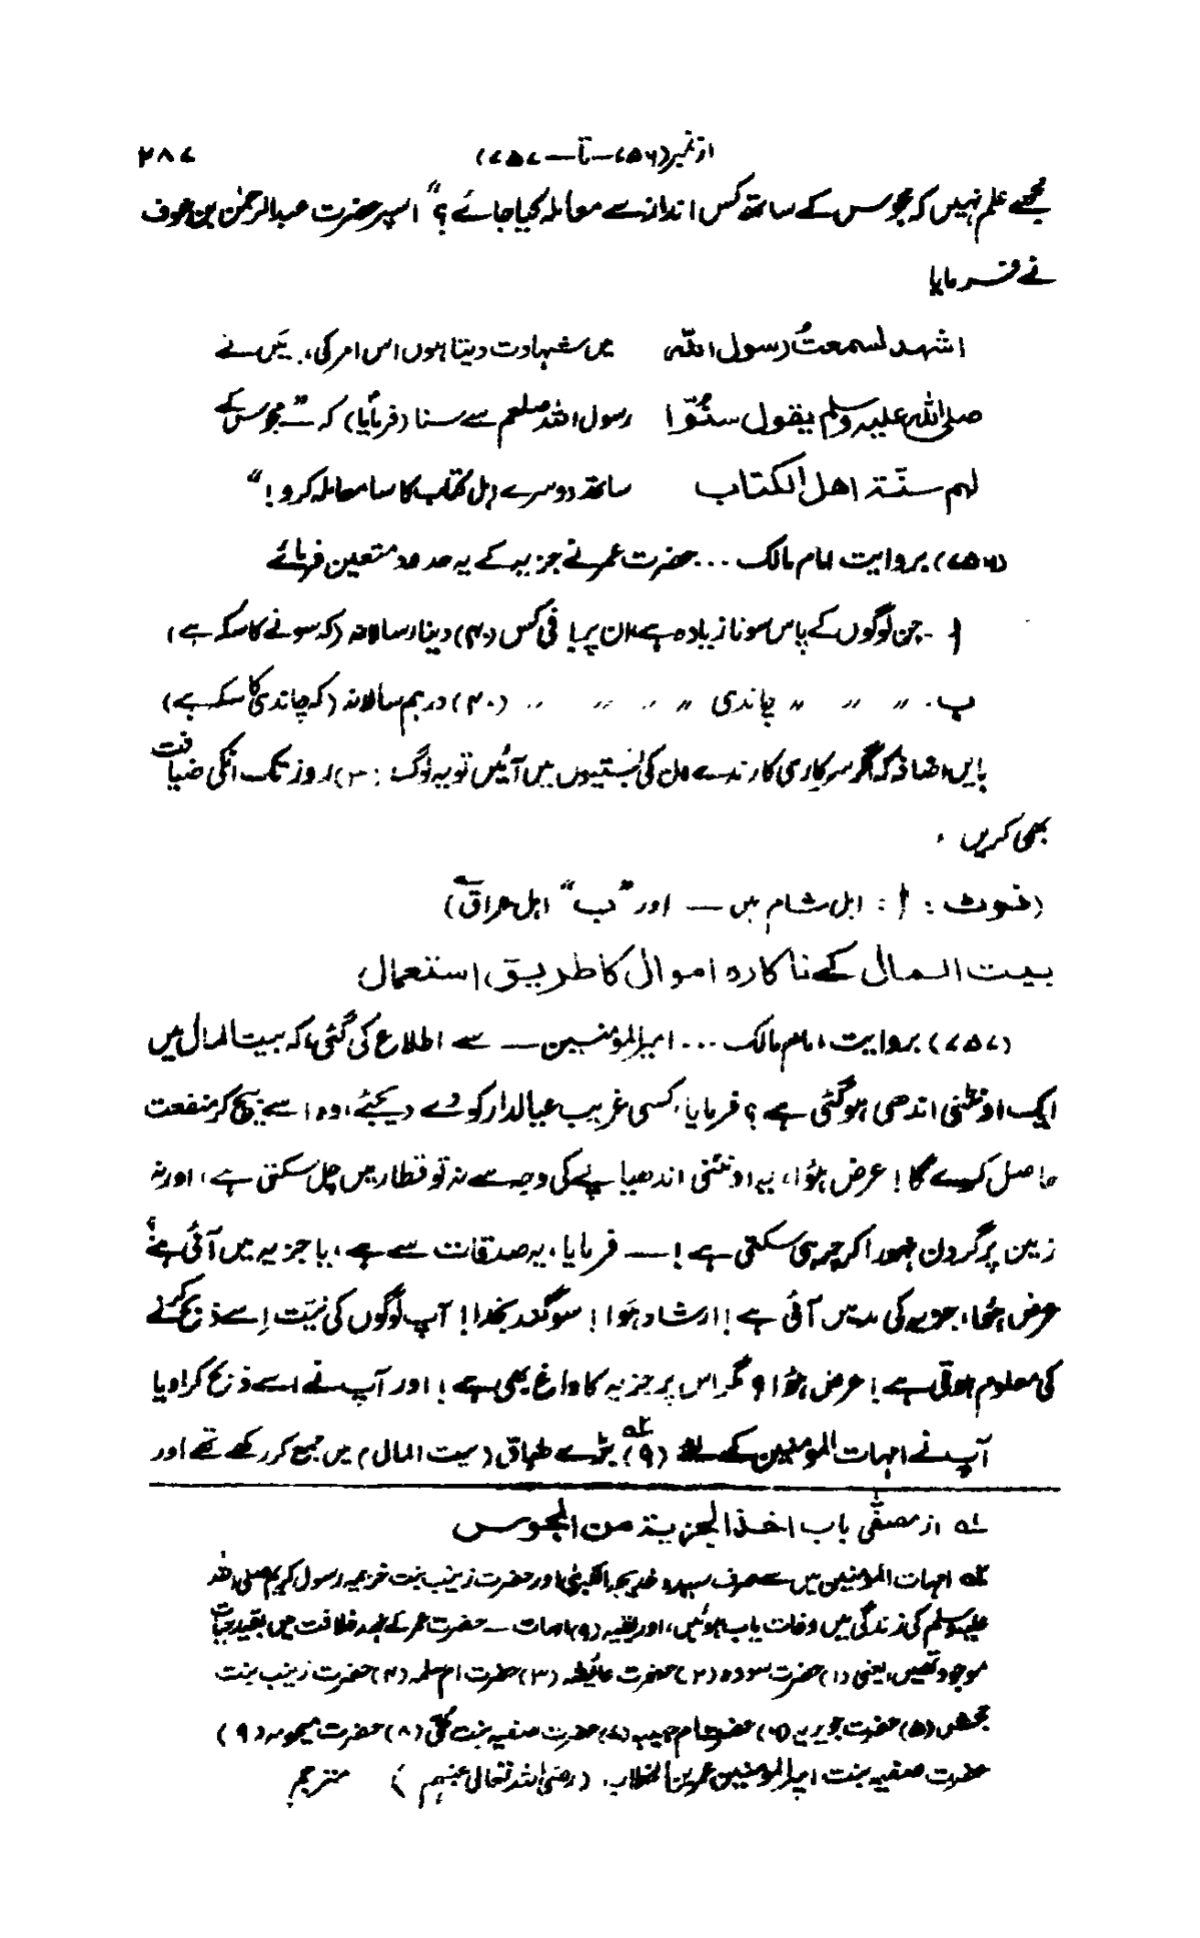 از نمبر (۷۵۶ – تا – ۷۵۷) ۲۸۷
مجھے علم نہیں کہ مجوس کے ساتھ کس انداز سے معاملہ کیا جائے؟" اسپر حضرت عبدالرحمٰن بن عوف
نے فرمایا
اشہد لسمعتُ رسول اللّٰہ میں شہادت دیتا ہوں اس امر کی، میں نے
صلی اللہ علیہ وسلم یقول سنُّوا رسول اللہ صلعم سے سنا (فرمایا) کہ "مجوس کے
لہم سنّۃ اھل الکتاب ساتھ دوسرے اہل کتاب کا سا معاملہ کرو!"
(۷۵۶) بروایت امام مالک ... حضرت عمر نے جزیہ کے یہ حدود متعین فرمائے
ا - جن لوگوں کے پاس سونا زیادہ ہے ان پر فی کس (۴) دینار سالانہ (کہ سونے کا سکہ ہے)
ب - " " " چاندی " " " " (۴۰) درہم سالانہ (کہ چاندی کا سکہ ہے)
بایں اضافہ کہ اگر سرکاری کارندے ان کی بستیوں میں آئیں تو یہ لوگ : (۳) روز تک انکی ضیافت
بھی کریں ۔
(نوٹ : ا : اہل شام ہیں — اور "ب" اہل عراق)
بیت المال کے ناکارہ اموال کا طریق استعمال
(۷۵۷) بروایت امام مالک ... امیرالمومنین — سے اطلاع کی گئی، کہ بیت المال میں
ایک اونٹنی اندھی ہو گئی ہے؟ فرمایا، کسی غریب عیالدار کو دے دیجئے، وہ اسے بیچ کر منفعت
حاصل کرے گا! عرض ہُوا، یہ اونٹنی اندھیاپے کی وجہ سے نہ تو قطار میں چل سکتی ہے، اور نہ
زمین پر گردن نہوڑا کر چر ہی سکتی ہے! — فرمایا، یہ صدقات سے ہے، یا جزیہ میں آئی ہے؟
عرض ہُوا، جزیہ کی مد میں آئی ہے! ارشاد ہوا! سوگند بخدا! آپ لوگوں کی نیّت اِسے ذبح کرنے
کی معلوم ہوتی ہے! عرض ہُوا؟ مگر اس پر جزیہ کا داغ بھی ہے! اور آپ نے اسے ذبح کرا دیا
آپ نے امہات المومنین کے لئے (۹)۲ بڑے طباق (بیت المال) میں جمع کر رکھے تھے اور
۱ از مصفّٰی باب اخذ الجزیۃ من المجوس
۲ امہات المومنین میں سے صرف سیدہ خدیجۃ الکبریٰ اور حضرت زینب بنت خزیمہ رسول کریم صلی اللہ
علیہ وسلم کی زندگی میں وفات یاب ہوئیں، اور بقیہ (۹) امہات – حضرت عمر کے عہد خلافت میں بقید حیات
موجود تھیں، یعنی (۱) حضرت سودہ (۲) حضرت عائشہ (۳) حضرت ام سلمہ (۴) حضرت زینب بنت
جحش (۵) حضرت جویریہ (۶) حضرت ام حبیبہ (۷) حضرت صفیہ بنت حُیی (۸) حضرت میمونہ (۹)
حضرت حفصہ بنت امیرالمومنین عمر بن الخطاب. (رضی اللہ تعالی عنہم) مترجم